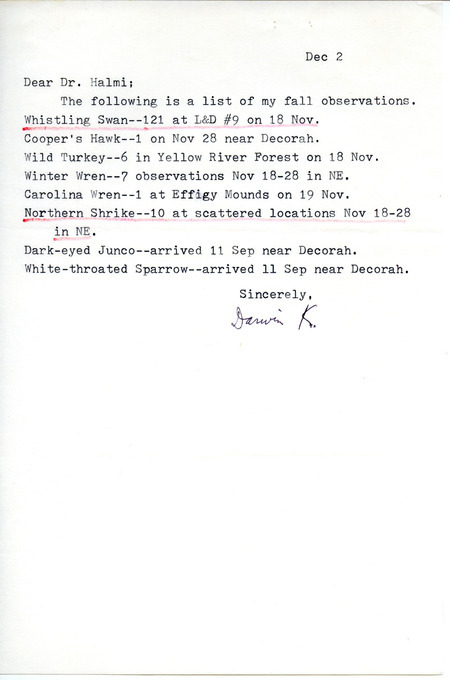 Dec 2
Dear Dr. Halmi;
The following is a list of my fall observations.
Whistling Swan--121 at L&D #9 on 18 Nov.
Cooper's Hawk--1 on Nov 28 near Decorah.
Wild Turkey--6 in Yellow River Forest on 18 Nov.
Winter Wren--7 observations Nov 18-28 in NE.
Carolina Wren--1 at Effigy Mounds on 19 Nov.
Northern Shrike--10 at scattered locations Nov 18-28
in NE.
Dark-eyed Junco--arrived 11 Sep near Decorah.
White-throated Sparrow--arrived 11 Sep near Decorah.
Sincerely,
Darwin K.